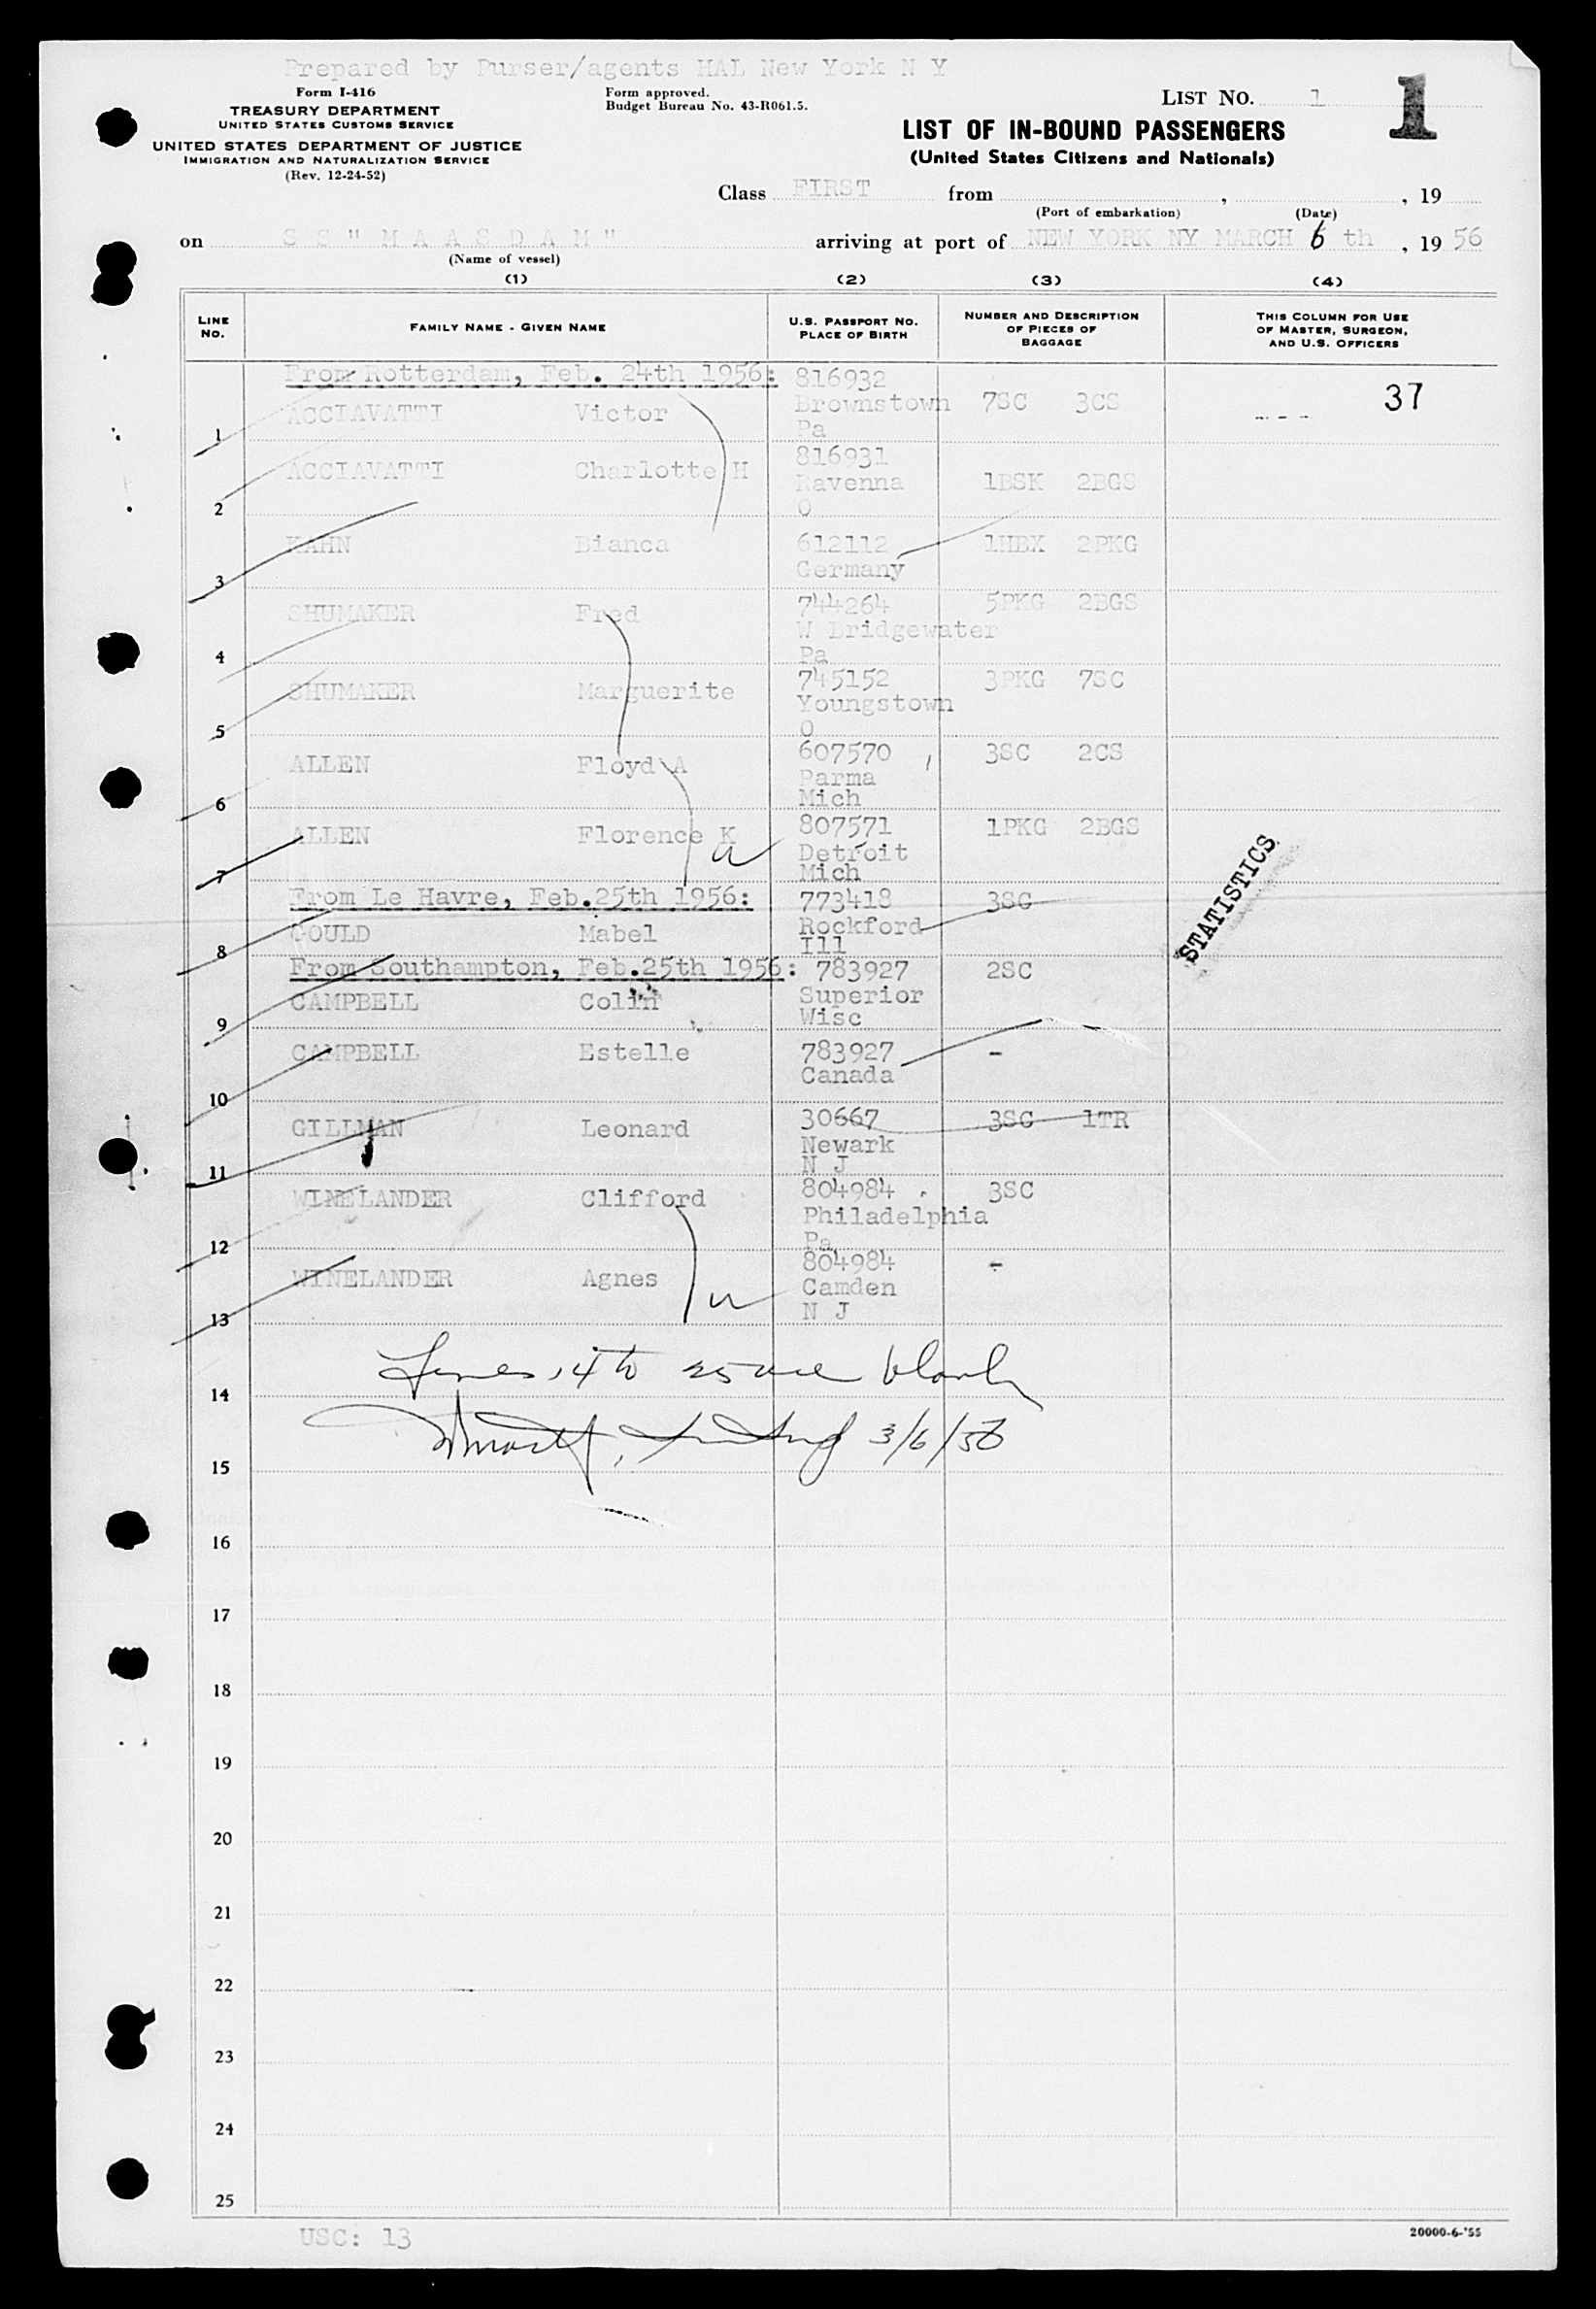 Prepared by Purser/agents HAL New York N Y
Form I-416
TREASURY DEPARTMENT
UNITED STATES CUSTOMS SERVICE
UNITED STATES DEPARTMENT OF JUSTICE
IMMIGRATION AND NATURALIZATION SERVICE
(Rev. 12-24-52)
Form approved.
Budget Bureau No. 43-R061.5.
LIST NO. 1
1
LIST OF IN-BOUND PASSENGERS
(United States Citizens and Nationals)
Class FIRST from , , 19
(Port of embarkation) (Date)
on S S " M A A S D A M " arriving at port of NEW YORK NY MARCH 6 th , 19 56
(Name of vessel)
(1) (2) (3) (4)
LINE NO. FAMILY NAME - GIVEN NAME U.S. PASSPORT NO. PLACE OF BIRTH NUMBER AND DESCRIPTION OF PIECES OF BAGGAGE THIS COLUMN FOR USE OF MASTER, SURGEON, AND U.S. OFFICERS
From Rotterdam, Feb. 24th 1956: 816932
37
1 ACCIAVATTI Victor Brownstown 7SC 3CS
Pa
816931
2 ACCIAVATTI Charlotte H Ravenna 1BSK 2BGS
O
3 KAHN Bianca 612112 1HBX 2PKG
Germany
4 SHUMAKER Fred 744264 5PKG 2BGS
W Bridgewater
Pa
5 SHUMAKER Marguerite 745152 3PKG 7SC
Youngstown
O
6 ALLEN Floyd A 607570 3SC 2CS
Parma
Mich
7 ALLEN Florence K 807571 1PKG 2BGS
Detroit
Mich
From Le Havre, Feb.25th 1956: 773418 3SC
8 GOULD Mabel Rockford
Ill
STATISTICS
From Southampton, Feb.25th 1956: 783927 2SC
9 CAMPBELL Colin Superior
Wisc
10 CAMPBELL Estelle 783927 -
Canada
11 GILLMAN Leonard 30667 3SC 1TR
Newark
N J
12 WINELANDER Clifford 804984 3SC
Philadelphia
Pa
13 WINELANDER Agnes 804984 -
Camden
N J
Lines 14 to 25 are blank
14
3/6/56
15
16
17
18
19
20
21
22
23
24
25
USC: 13
20000-6-'55